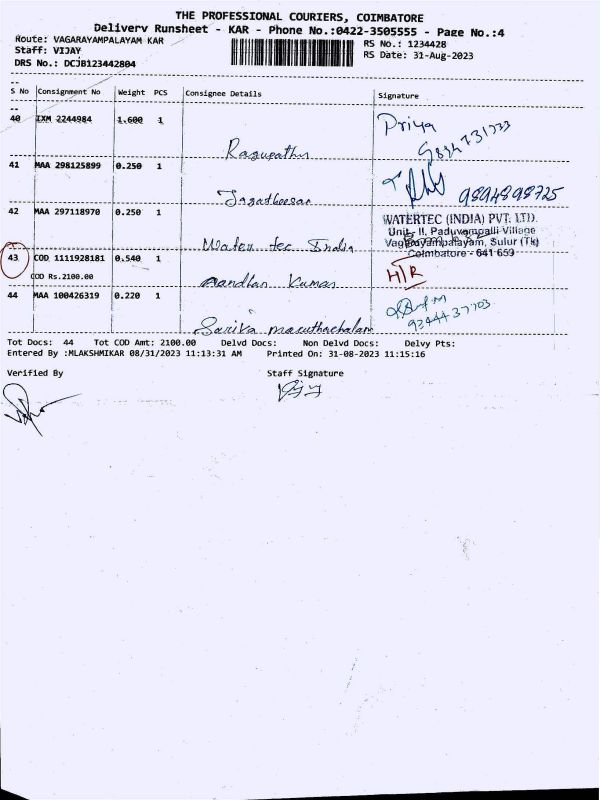 THE PROFESSIONAL COURIERS, COIMBATORE
Delivery Runsheet - KAR - Phone No.:0422-3505555 - Page No.:4
Route: VAGARAYAMPALAYAM KAR
RS No.: 1234428
Staff: VIJAY
RS Date: 31-Aug-2023
DRS No.: DCJB123442804
S No Consignment No Weight PCS Consignee Details Signature
40 IXM 2244984 1.600 1
Priya
Ragupathy
41 MAA 298125899 0.250 1
9894898725
Jagadheesan
42 MAA 297118970 0.250 1
WATERTEC (INDIA) PVT. LTD.
Unit- II, Paduvampalli Village
Vagarayampalayam, Sulur (Tk)
Coimbatore - 641 659
Water tec India
43 COD 1111928181 0.540 1
COD Rs.2100.00
H/R
Nandhan Kumar
44 MAA 100426319 0.220 1
Sarika maruthachalam
Tot Docs: 44 Tot COD Amt: 2100.00 Delvd Docs: Non Delvd Docs: Delvy Pts:
Entered By :MLAKSHMIKAR 08/31/2023 11:13:31 AM Printed On: 31-08-2023 11:15:16
Verified By Staff Signature